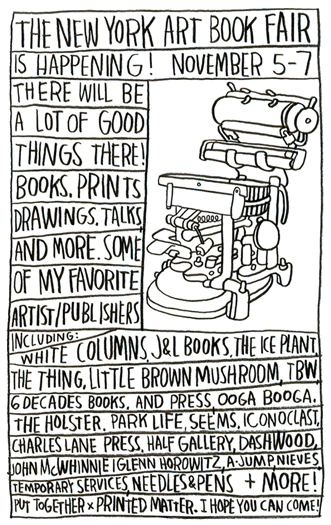 THE NEW YORK ART BOOK FAIR
IS HAPPENING! NOVEMBER 5-7
THERE WILL BE
A LOT OF GOOD
THINGS THERE!
BOOKS, PRINTS
DRAWINGS, TALKS
AND MORE. SOME
OF MY FAVORITE
ARTIST/PUBLISHERS
INCLUDING:
WHITE COLUMNS, J&L BOOKS, THE ICE PLANT,
THE THING, LITTLE BROWN MUSHROOM, TBW,
6 DECADES BOOKS, AND PRESS, OOGA BOOGA,
THE HOLSTER, PARK LIFE, SEEMS, ICONOCLAST,
CHARLES LANE PRESS, HALF GALLERY, DASHWOOD,
JOHN McWHINNIE | GLENN HOROWITZ, A-JUMP, NIEVES,
TEMPORARY SERVICES, NEEDLES & PENS + MORE!
PUT TOGETHER x PRINTED MATTER. I HOPE YOU CAN COME!